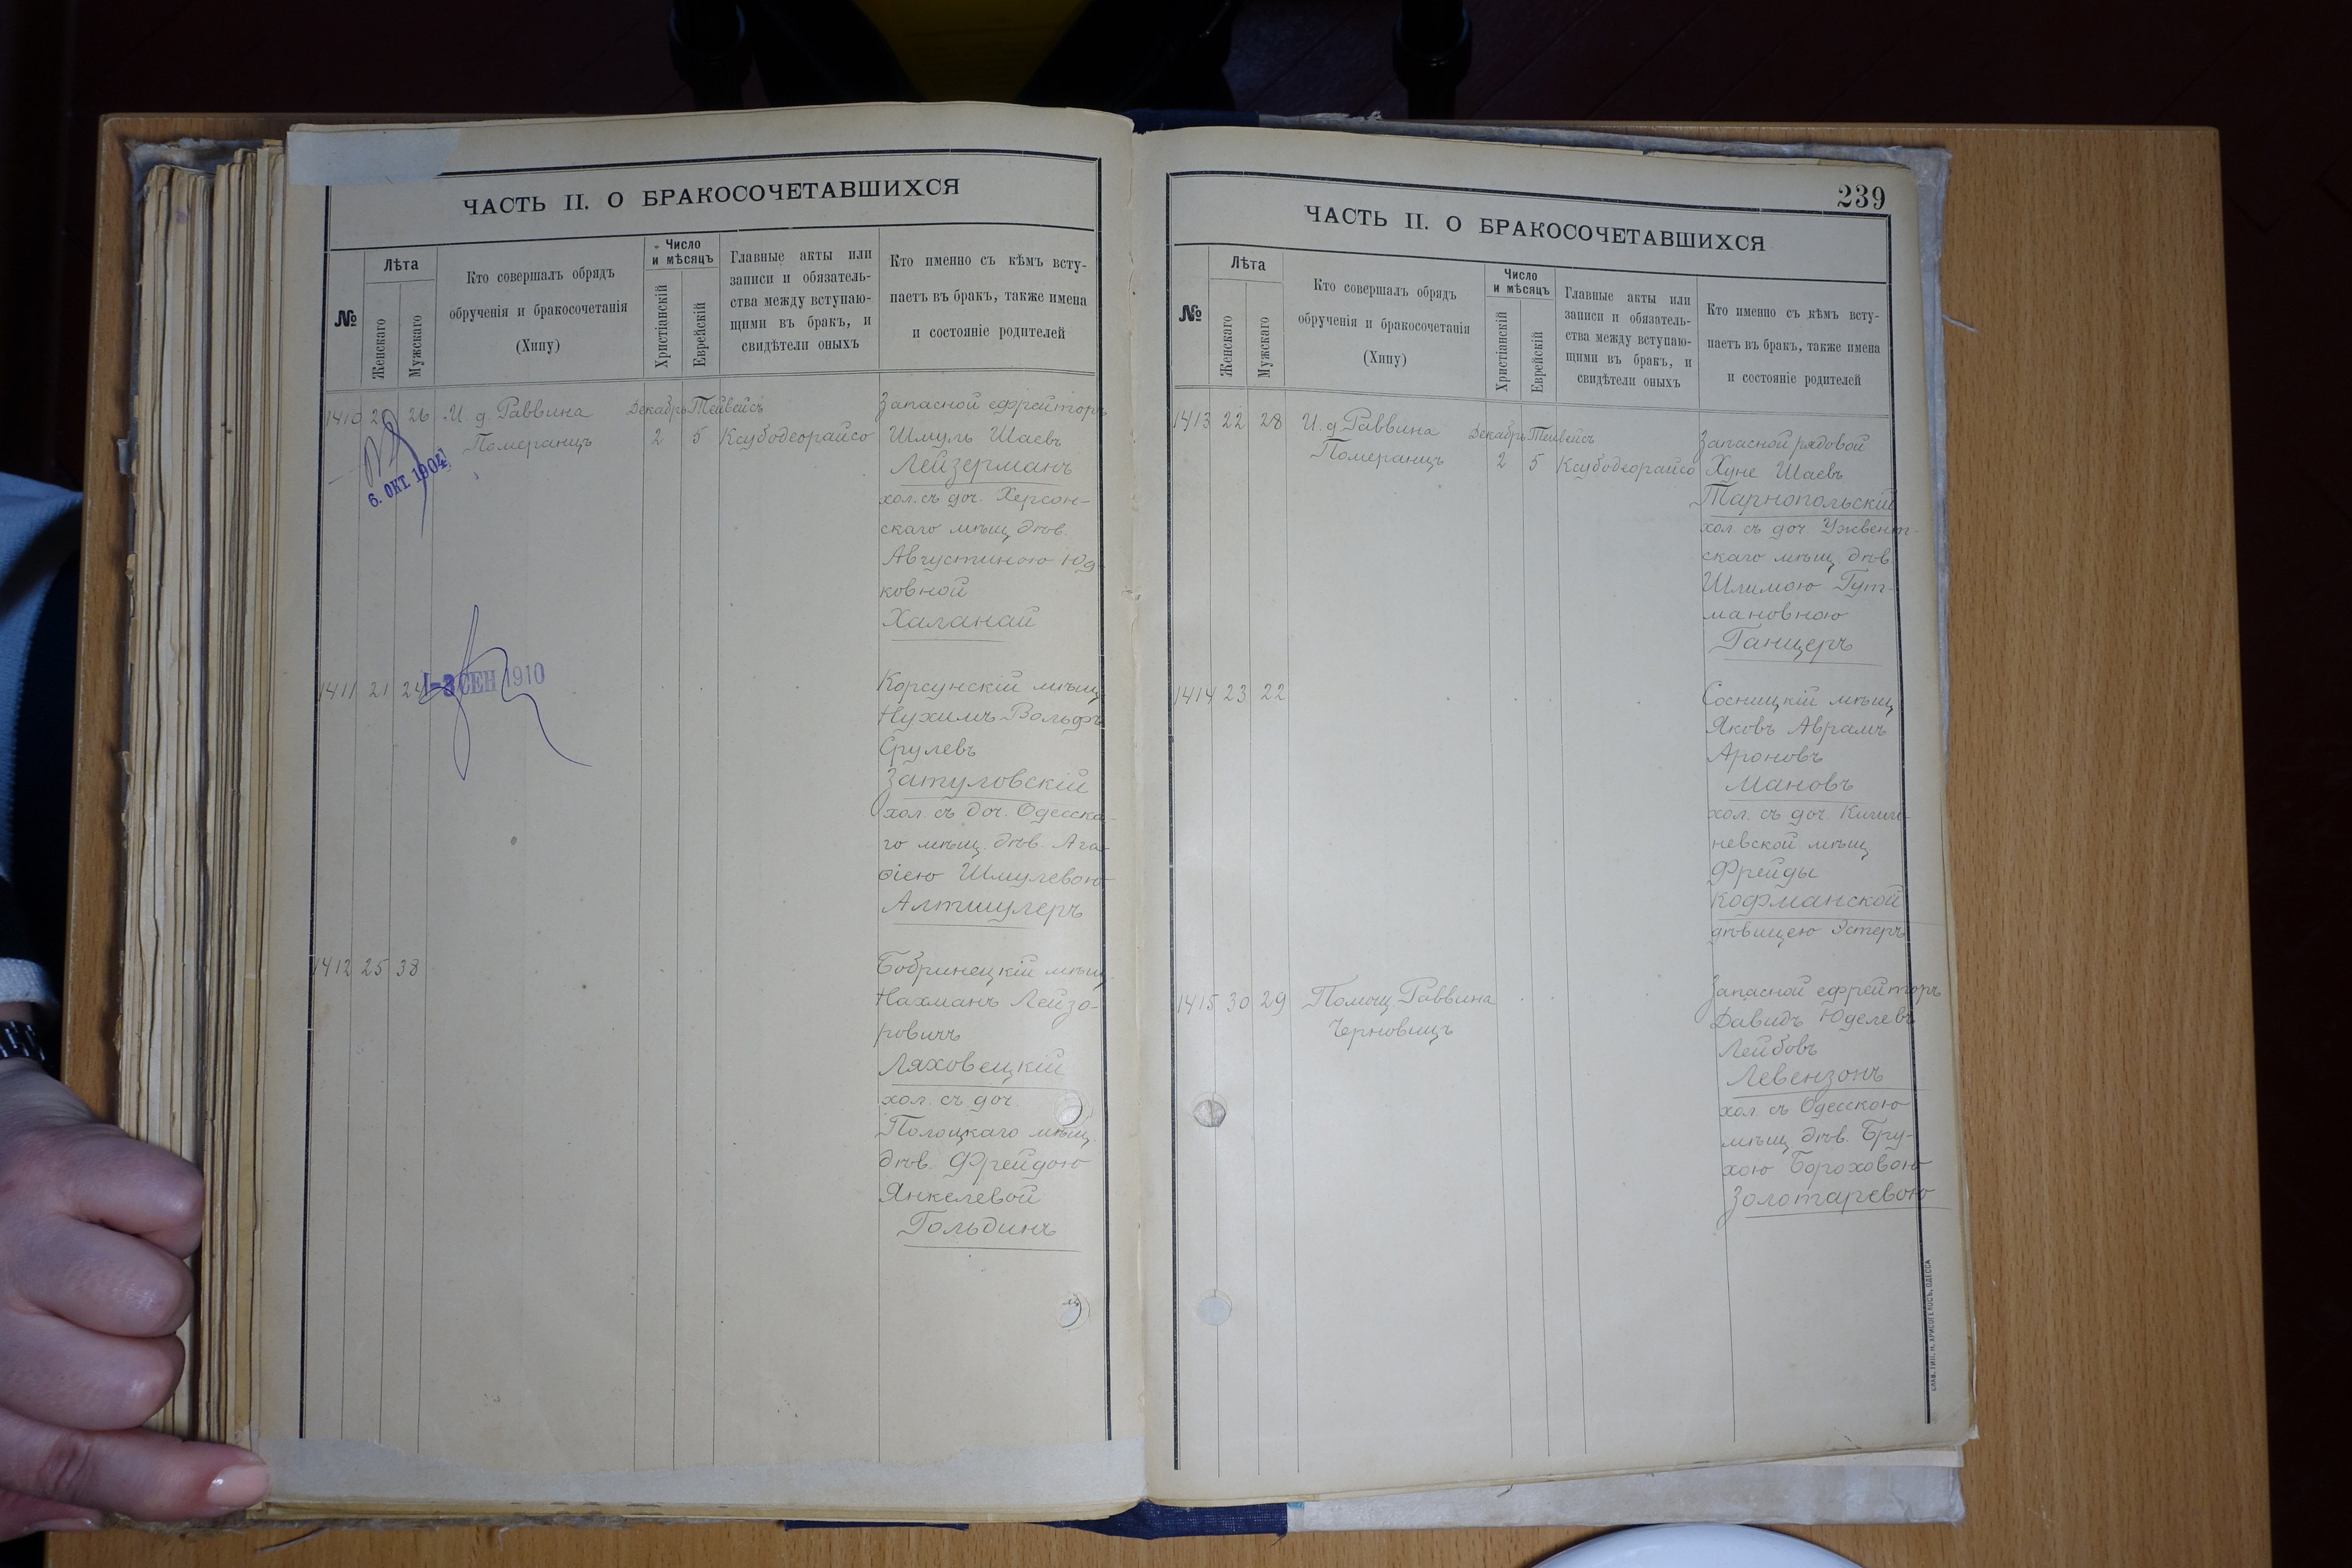 ЧАСТЬ II. О БРАКОСОЧЕТАВШИХСЯ
№
Лѣта
Женскаго
Мужскаго
Кто совершалъ обрядъ
обрученія и бракосочетанія
(Хипу)
Число
и мѣсяцъ
Христіанскій
Еврейскій
Главные акты или
записи и обязатель-
ства между вступаю-
щими въ бракъ, и
свидѣтели оныхъ
Кто именно съ кѣмъ всту-
паетъ въ бракъ, также имена
и состояніе родителей
1410 20 26 И. д. Раввина
Померанцъ
Декабрь Тейвейсъ
2 5 Ксубодеорайсо
Запасной ефрейторъ
Шмуль Шаевъ
Лейзерманъ
хол. съ доч. Херсон-
скаго мѣщ. дѣв.
Августиною Юд-
ковной
Халанай
6. ОКТ. 1904
1411 21 24
-3 СЕН 1910
Корсунскій мѣщ.
Нухимъ Вольфъ
Срулевъ
Затуловскій
хол. съ доч. Одесска-
го мѣщ. дѣв. Ага-
ѳіею Шмулевою
Алтшулеръ
1412 25 38
Бобринецкій мѣщ.
Нахманъ Лейзо-
ровичъ
Ляховецкій
хол. съ доч.
Полоцкаго мѣщ.
дѣв. Фрейдою
Янкелевой
Гольдинъ
239
ЧАСТЬ II. О БРАКОСОЧЕТАВШИХСЯ
№
Лѣта
Женскаго
Мужскаго
Кто совершалъ обрядъ
обрученія и бракосочетанія
(Хипу)
Число
и мѣсяцъ
Христіанскій
Еврейскій
Главные акты или
записи и обязатель-
ства между вступаю-
щими въ бракъ, и
свидѣтели оныхъ
Кто именно съ кѣмъ всту-
паетъ въ бракъ, также имена
и состояніе родителей
1413 22 28 И. д. Раввина
Померанцъ
Декабрь Тейвейсъ
2 5 Ксубодеорайсо
Запасной рядовой
Хуне Шаевъ
Тарнопольскій
хол. съ доч. Ужвент-
скаго мѣщ. дѣв.
Шлимою Гут-
мановною
Ганцеръ
1414 23 22
Сосницкій мѣщ.
Яковъ Аврамъ
Ароновъ
Мановъ
хол. съ доч. Киши-
невской мѣщ.
Фрейды
Кофманской
дѣвицею Эстеръ
1415 30 29 Помощ. Раввина
Черновицъ
Запасной ефрейторъ
Давидъ Юделевъ
Лейбовъ
Левензонъ
хол. съ Одесскою
мѣщ. дѣв. Бру-
хою Бороховою
Золотаревою
СЛАВ. ТИП. Н. ХРИСОГЕЛОСЪ, ОДЕССА